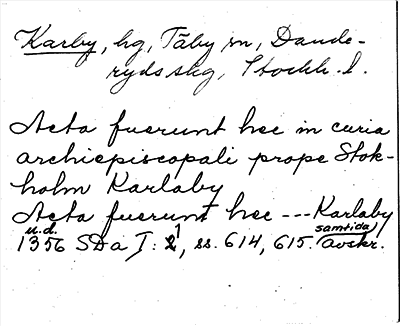 Karby, hg, Täby sn, Dande-
rydsskg, Stockh. l.
Acta fuerunt hec in curia
archiepiscopali prope Stok-
holm Karlaby
Acta fuerunt hec --- Karlaby
u.d. samtida
1356 SDa I: 1, ss. 614, 615. avskr.